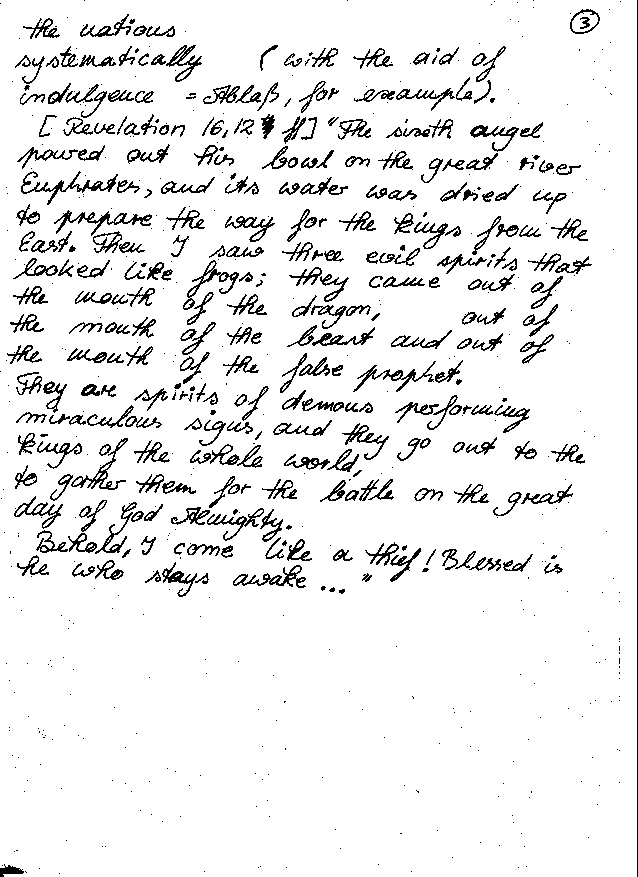 3
the nations
systematically ( with the aid of
indulgence = Ablaß, for example).
[ Revelation 16,12 ff] "The sixth angel
poured out his bowl on the great river
Euphrates, and its water was dried up
to prepare the way for the kings from the
East. Then I saw three evil spirits that
looked like frogs; they came out of
the mouth of the dragon, out of
the mouth of the beast and out of
the mouth of the false prophet.
They are spirits of demons performing
miraculous signs, and they go out to the
kings of the whole world,
to gather them for the battle on the great
day of God Almighty.
Behold, I come like a thief! Blessed is
he who stays awake ... "